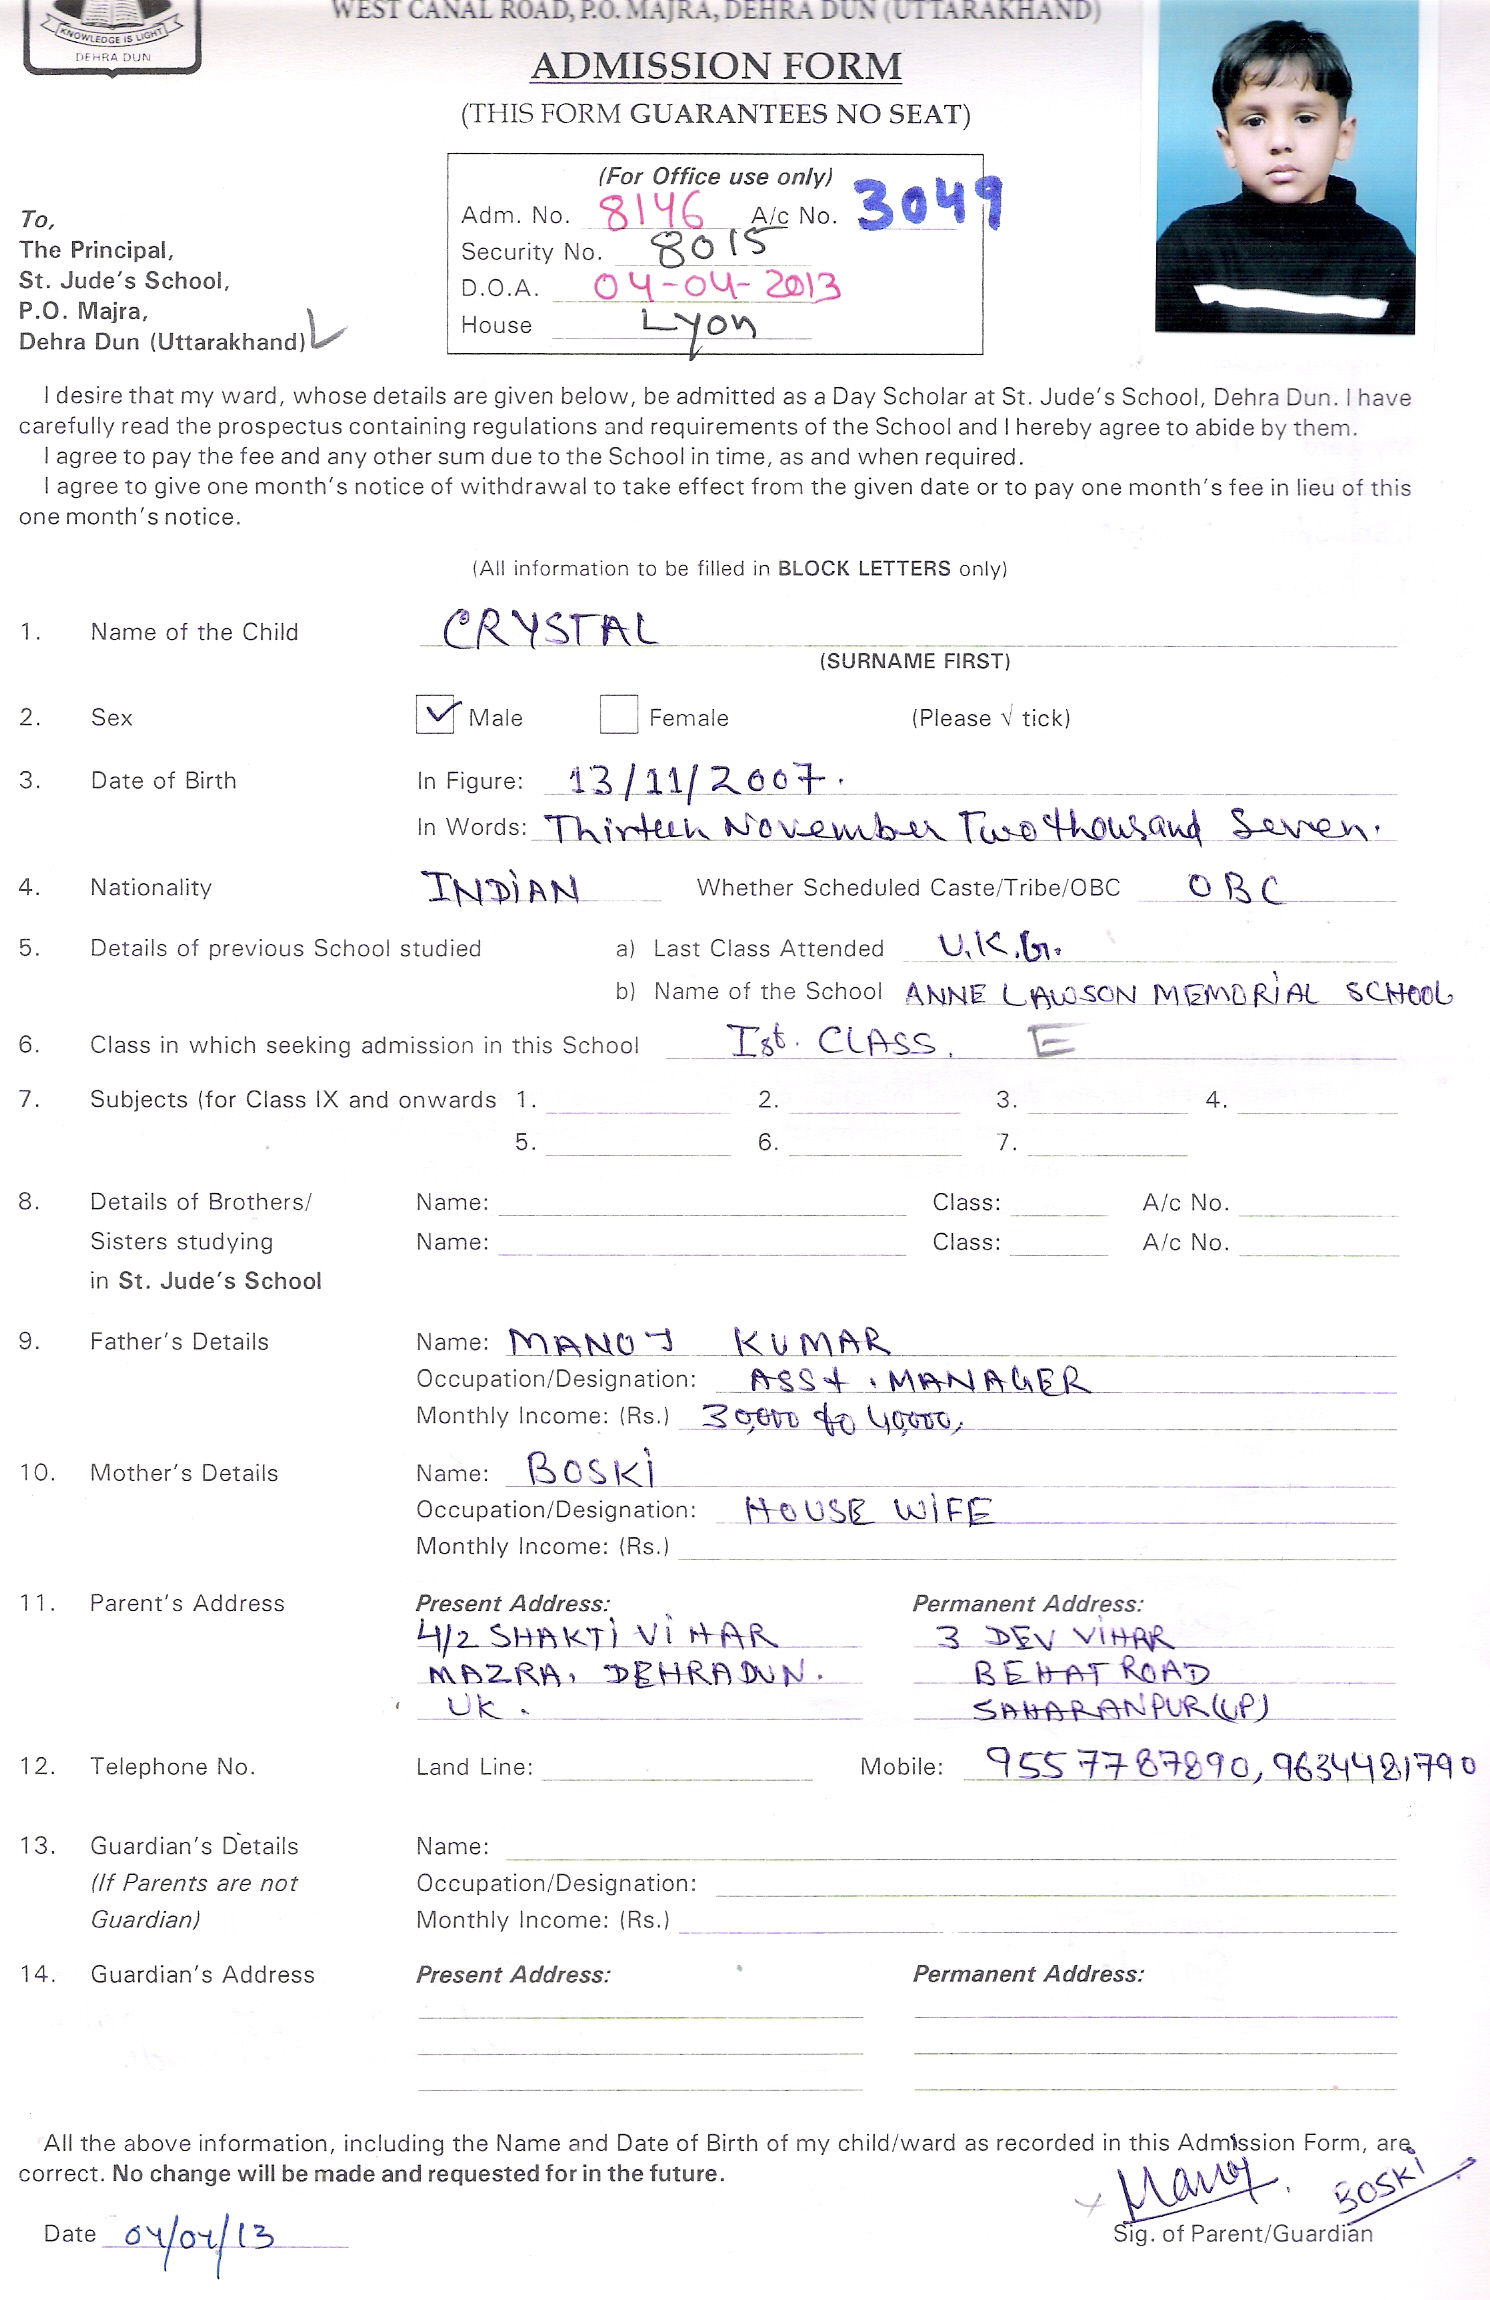 WEST CANAL ROAD, P.O. MAJRA, DEHRA DUN (UTTARAKHAND)
KNOWLEDGE IS LIGHT
DEHRA DUN
ADMISSION FORM
(THIS FORM GUARANTEES NO SEAT)
(For Office use only)
Adm. No. 8146 A/c No. 3049
Security No. 8015
D.O.A. 04-04-2013
House Lyon
To,
The Principal,
St. Jude's School,
P.O. Majra,
Dehra Dun (Uttarakhand)
I desire that my ward, whose details are given below, be admitted as a Day Scholar at St. Jude's School, Dehra Dun. I have
carefully read the prospectus containing regulations and requirements of the School and I hereby agree to abide by them.
I agree to pay the fee and any other sum due to the School in time, as and when required.
I agree to give one month's notice of withdrawal to take effect from the given date or to pay one month's fee in lieu of this
one month's notice.
(All information to be filled in BLOCK LETTERS only)
1. Name of the Child CRYSTAL
(SURNAME FIRST)
2. Sex ✓ Male Female (Please √ tick)
3. Date of Birth In Figure: 13/11/2007.
In Words: Thirteen November Two thousand Seven.
4. Nationality INDIAN Whether Scheduled Caste/Tribe/OBC OBC
5. Details of previous School studied a) Last Class Attended U.K.G.
b) Name of the School ANNE LAWSON MEMORIAL SCHOOL
6. Class in which seeking admission in this School Ist. CLASS. E
7. Subjects (for Class IX and onwards 1. 2. 3. 4.
5. 6. 7.
8. Details of Brothers/ Name: Class: A/c No.
Sisters studying Name: Class: A/c No.
in St. Jude's School
9. Father's Details Name: MANOJ KUMAR
Occupation/Designation: ASSt. MANAGER
Monthly Income: (Rs.) 30,000 to 40,000,
10. Mother's Details Name: BOSKI
Occupation/Designation: HOUSE WIFE
Monthly Income: (Rs.)
11. Parent's Address Present Address: Permanent Address:
4/2 SHAKTI VIHAR 3 DEV VIHAR
MAZRA, DEHRADUN. BEHAT ROAD
UK. SAHARANPUR (UP)
12. Telephone No. Land Line: Mobile: 9557787890, 9634481790
13. Guardian's Details Name:
(If Parents are not Occupation/Designation:
Guardian) Monthly Income: (Rs.)
14. Guardian's Address Present Address: Permanent Address:
All the above information, including the Name and Date of Birth of my child/ward as recorded in this Admission Form, are
correct. No change will be made and requested for in the future.
Manoj. BOSKI
Date 04/04/13 Sig. of Parent/Guardian